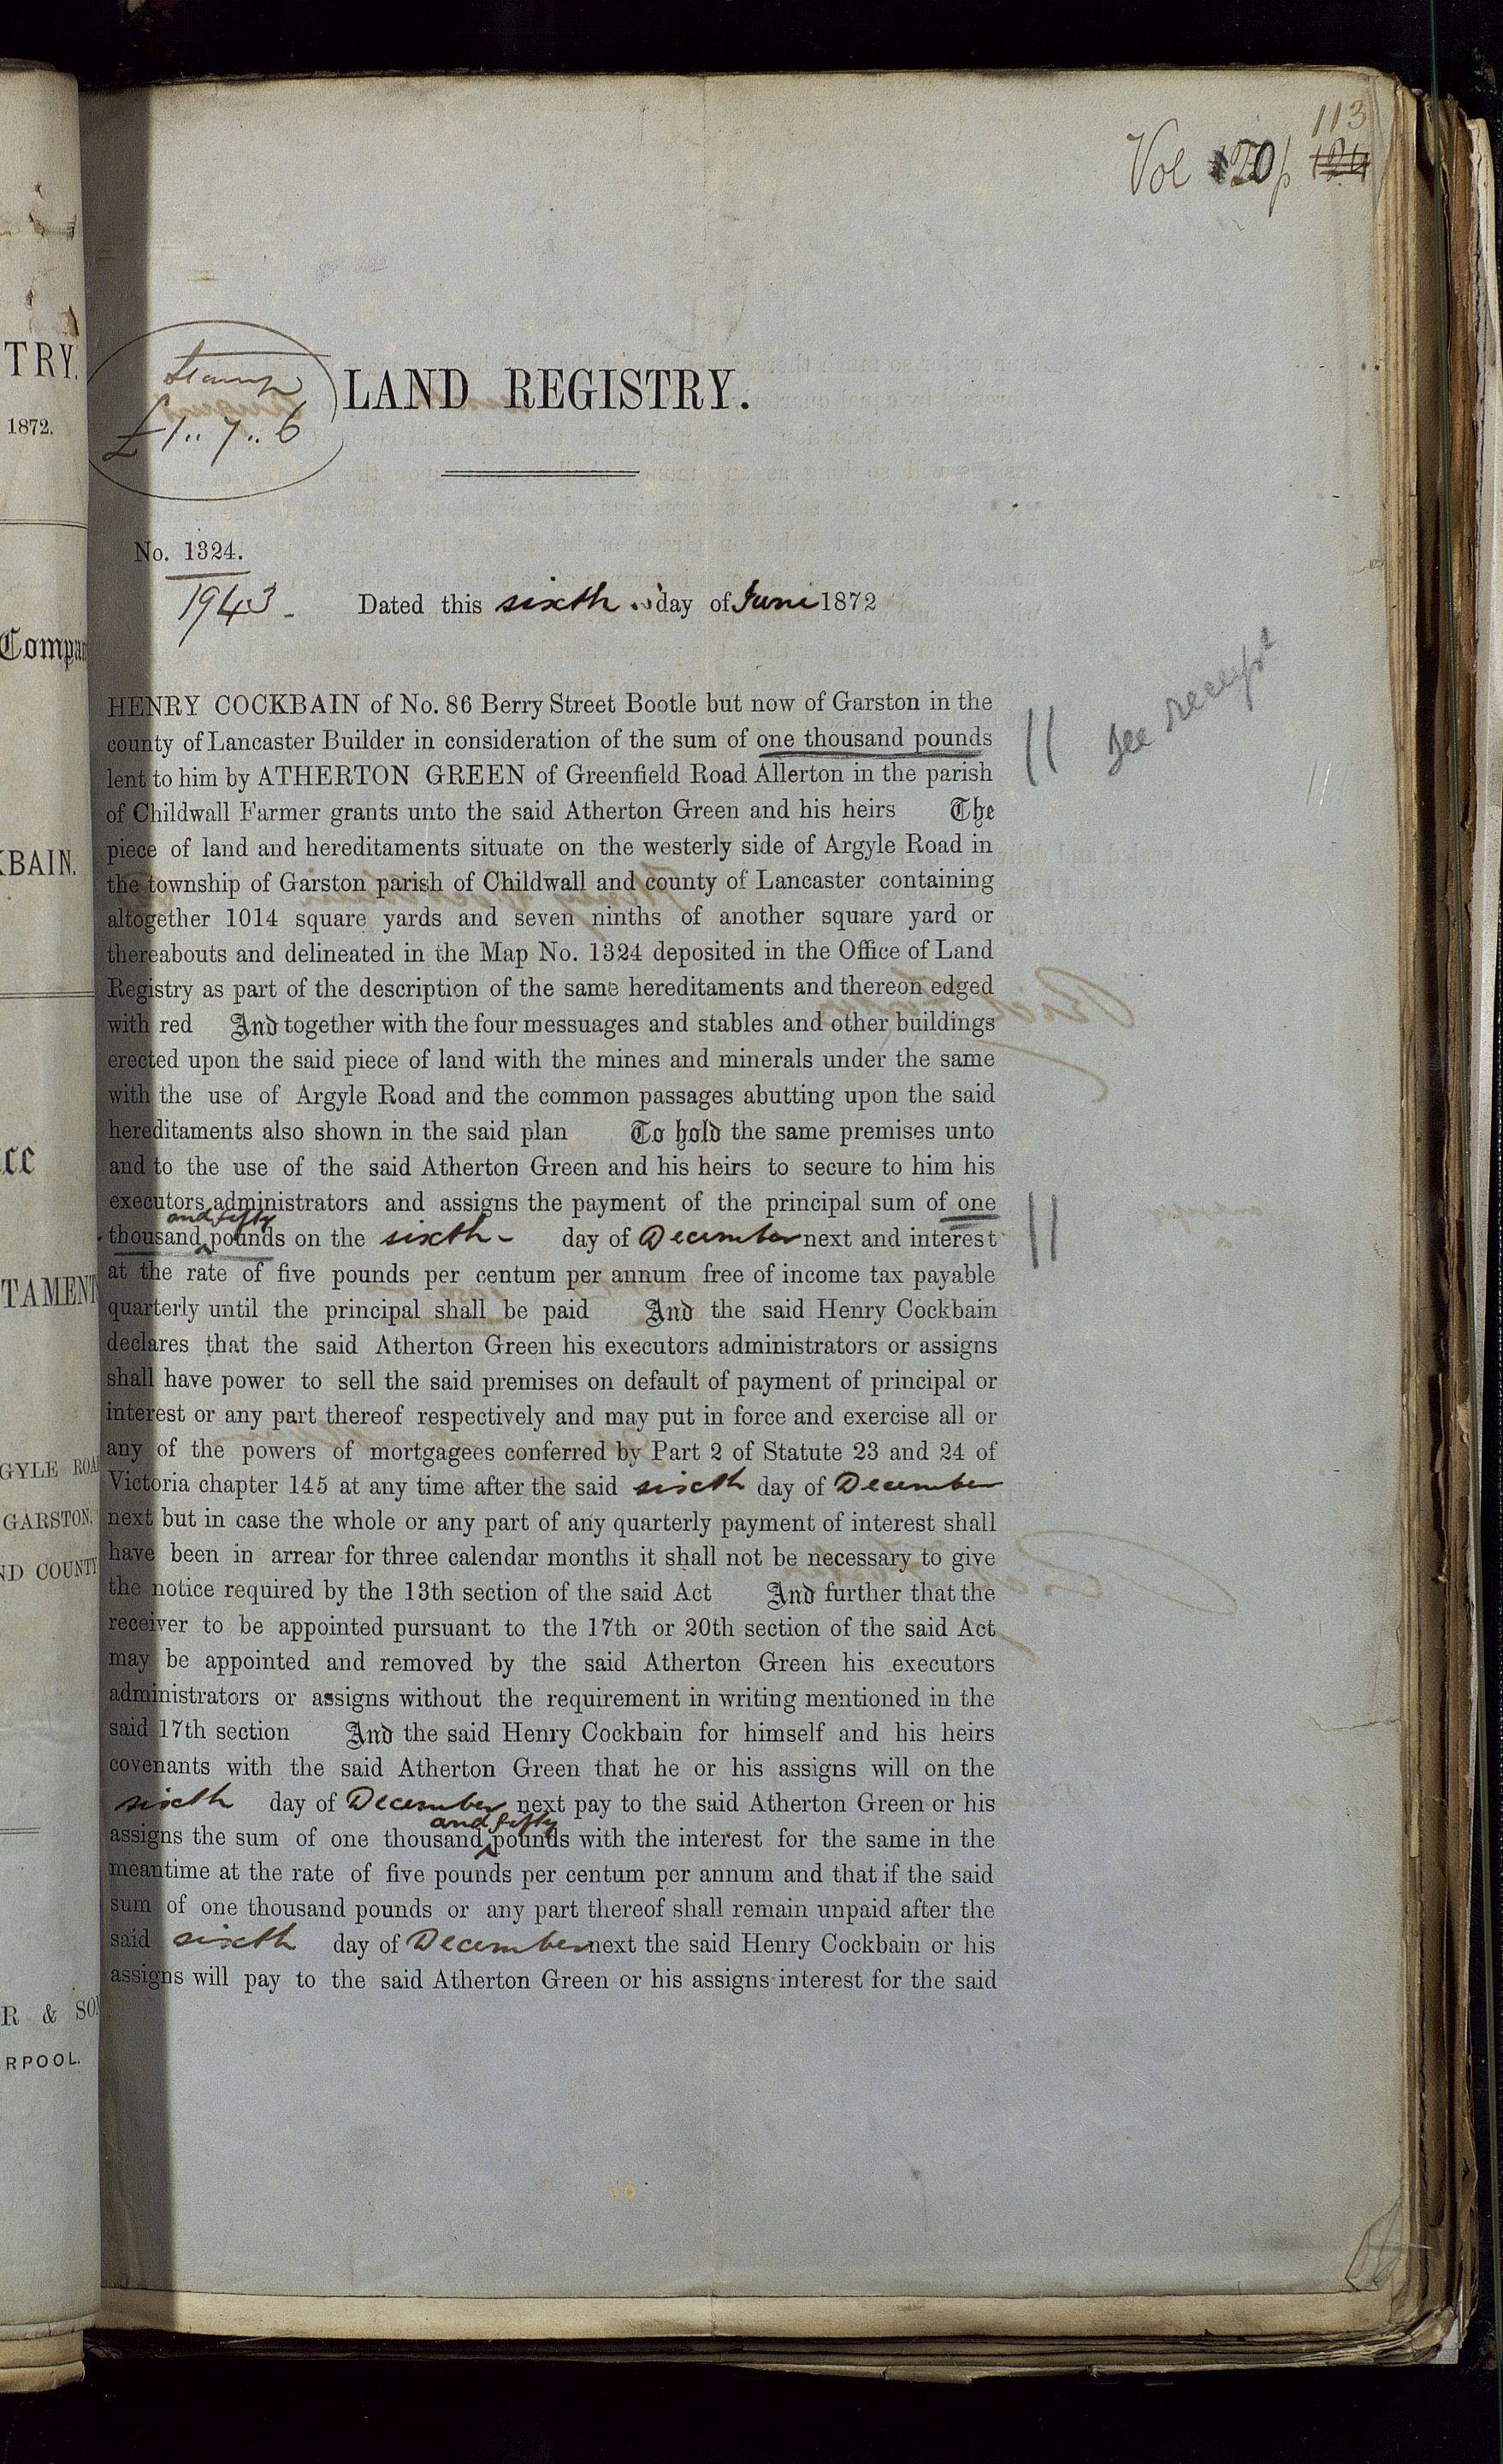 113
Vol 120 p 124
Stamp
£1..7..6
LAND REGISTRY.
No. 1324.
1943
Dated this sixth day of June 1872
see receipt
HENRY COCKBAIN of No. 86 Berry Street Bootle but now of Garston in the
county of Lancaster Builder in consideration of the sum of one thousand pounds
lent to him by ATHERTON GREEN of Greenfield Road Allerton in the parish
of Childwall Farmer grants unto the said Atherton Green and his heirs The
piece of land and hereditaments situate on the westerly side of Argyle Road in
the township of Garston parish of Childwall and county of Lancaster containing
altogether 1014 square yards and seven ninths of another square yard or
thereabouts and delineated in the Map No. 1324 deposited in the Office of Land
Registry as part of the description of the same hereditaments and thereon edged
with red And together with the four messuages and stables and other buildings
erected upon the said piece of land with the mines and minerals under the same
with the use of Argyle Road and the common passages abutting upon the said
hereditaments also shown in the said plan To hold the same premises unto
and to the use of the said Atherton Green and his heirs to secure to him his
executors administrators and assigns the payment of the principal sum of one
and fifty
thousand pounds on the sixth - day of December next and interest
at the rate of five pounds per centum per annum free of income tax payable
quarterly until the principal shall be paid And the said Henry Cockbain
declares that the said Atherton Green his executors administrators or assigns
shall have power to sell the said premises on default of payment of principal or
interest or any part thereof respectively and may put in force and exercise all or
any of the powers of mortgagees conferred by Part 2 of Statute 23 and 24 of
Victoria chapter 145 at any time after the said sixth day of December
next but in case the whole or any part of any quarterly payment of interest shall
have been in arrear for three calendar months it shall not be necessary to give
the notice required by the 13th section of the said Act And further that the
receiver to be appointed pursuant to the 17th or 20th section of the said Act
may be appointed and removed by the said Atherton Green his executors
administrators or assigns without the requirement in writing mentioned in the
said 17th section And the said Henry Cockbain for himself and his heirs
covenants with the said Atherton Green that he or his assigns will on the
sixth day of December next pay to the said Atherton Green or his
and fifty
assigns the sum of one thousand pounds with the interest for the same in the
meantime at the rate of five pounds per centum per annum and that if the said
sum of one thousand pounds or any part thereof shall remain unpaid after the
said sixth day of December next the said Henry Cockbain or his
assigns will pay to the said Atherton Green or his assigns interest for the said
TRY.
1872.
Compan
KBAIN.
TAMENT
GYLE ROA
GARSTON,
ND COUNTY
R & SON
RPOOL.